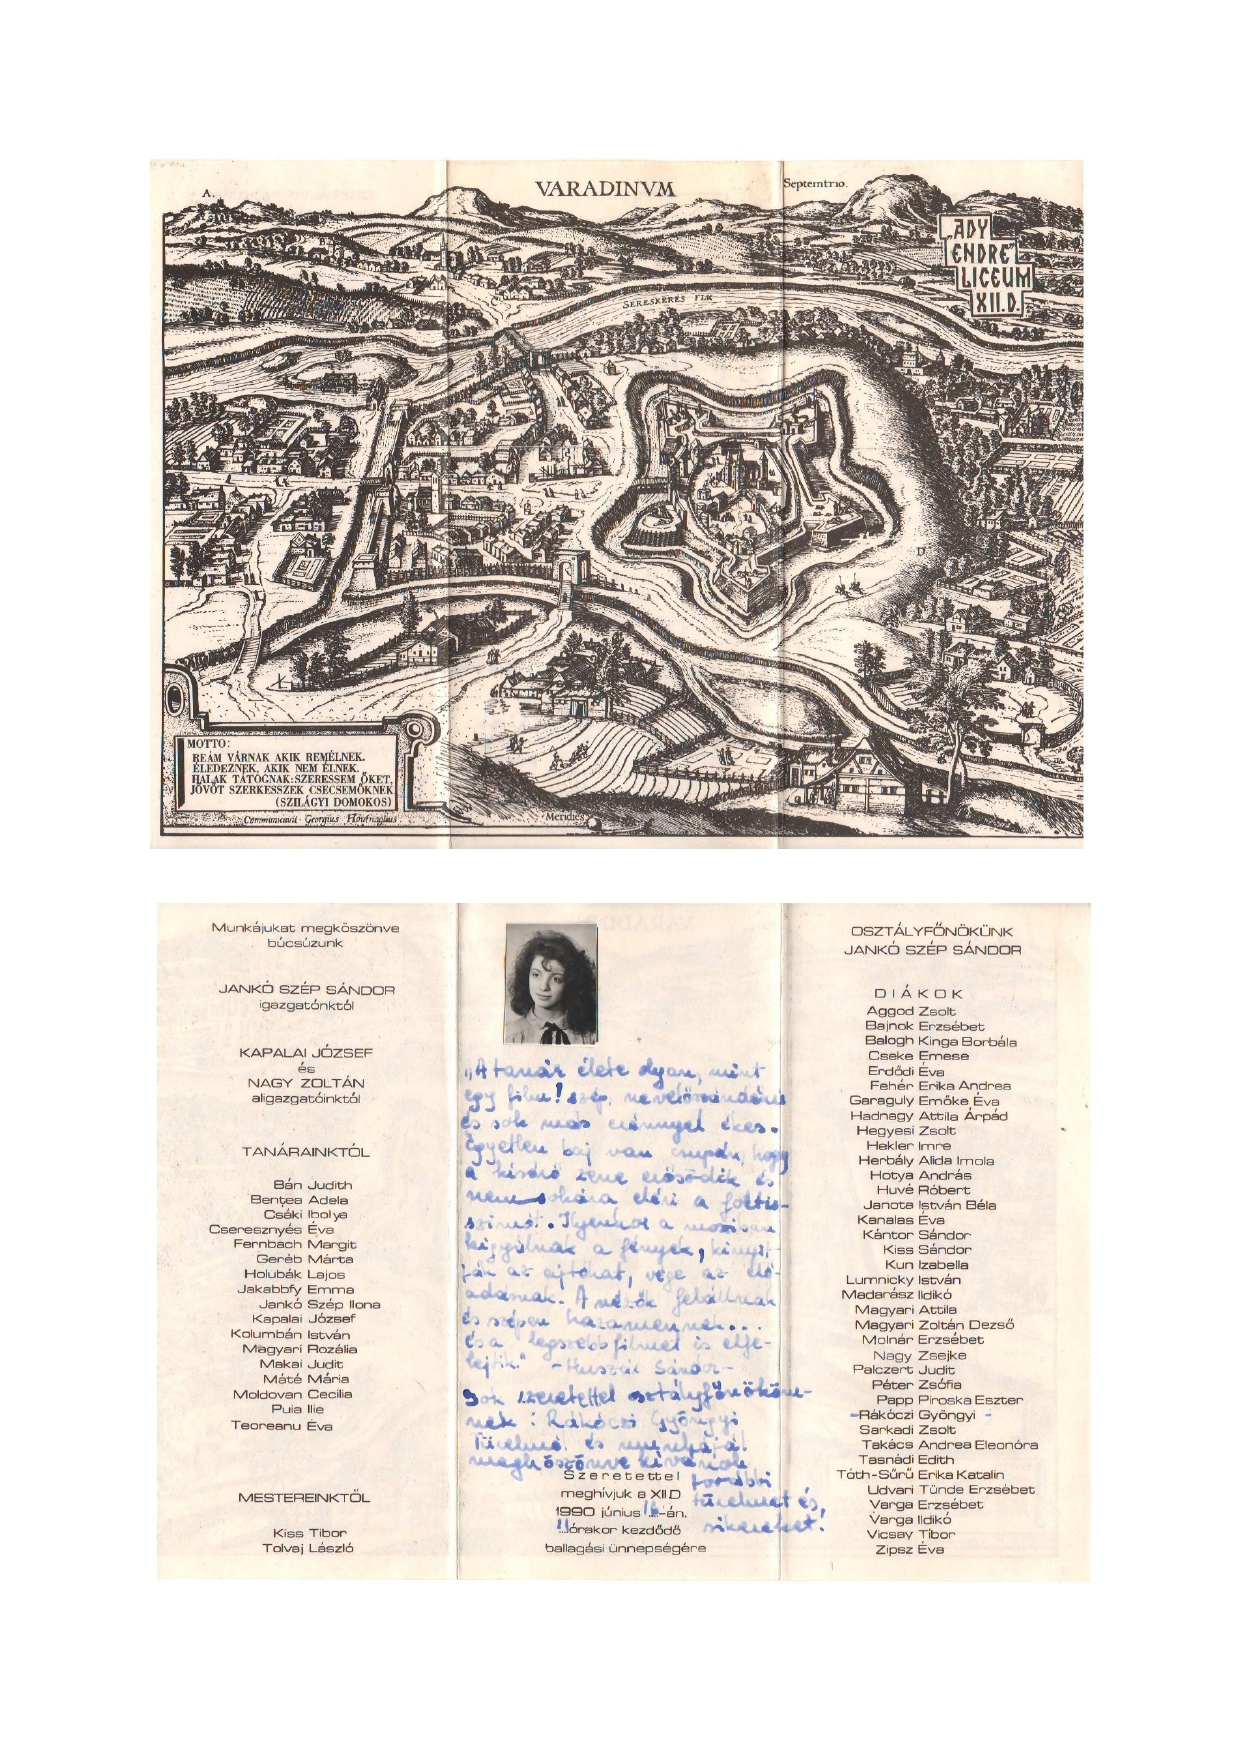 A.
VARADINVM
Septemtrio.
ADY
ENDRE
LICEUM
XII.D.
SERESKERES FLK
D
MOTTO:
REÁM VÁRNAK AKIK REMÉLNEK.
ÉLEDEZNEK, AKIK NEM ÉLNEK.
HALAK TÁTOGNAK: SZERESSEM ŐKET,
JÖVŐT SZERKESSZEK CSECSEMŐKNEK
(SZILÁGYI DOMOKOS)
Communicavit Georgius Houfnaglius
Meridies
Munkájukat megköszönve
búcsúzunk
JANKÓ SZÉP SÁNDOR
igazgatónktól
KAPALAI JÓZSEF
és
NAGY ZOLTÁN
aligazgatóinktól
TANÁRAINKTÓL
Bán Judith
Bențea Adela
Csáki Ibolya
Cseresznyés Éva
Fernbach Margit
Geréb Márta
Holubák Lajos
Jakabbfy Emma
Jankó Szép Ilona
Kapalai József
Kolumbán István
Magyari Rozália
Makai Judit
Máté Mária
Moldovan Cecilia
Puia Ilie
Teoreanu Éva
MESTEREINKTŐL
Kiss Tibor
Tolvaj László
„A tanár élete olyan, mint
egy film! szép,
és sok más erénnyel ékes.
Egyetlen baj van csupán, hogy
a kisérő zene erősödik és
nem sokára eléri a fortis-
szimót. Ilyenkor a moziban
kigyúlnak a fények, kinyit-
ják az ajtókat, vége az elő-
adásnak. A nézők felállnak
és szépen hazamennek...
és a legszebb filmet is elfe-
lejtik." - Huszár Sándor-
Sok szeretettel osztályfőnököm-
nek: Rákóczi Gyöngyi
Türelmét és munkáját
megköszönve kívánok
további
türelmet és,
sikereket!
Szeretettel
meghívjuk a XII.D
1990 június -án,
11 órakor kezdődő
ballagási ünnepségére
OSZTÁLYFŐNÖKÜNK
JANKÓ SZÉP SÁNDOR
DIÁKOK
Aggod Zsolt
Bajnok Erzsébet
Balogh Kinga Borbála
Cseke Emese
Erdődi Éva
Fehér Erika Andrea
Garaguly Emőke Éva
Hadnagy Attila Árpád
Hegyesi Zsolt
Hekler Imre
Herbály Alida Imola
Hotya András
Huvé Róbert
Janota István Béla
Kanalas Éva
Kántor Sándor
Kiss Sándor
Kun Izabella
Lumnicky István
Madarász Ildikó
Magyari Attila
Magyari Zoltán Dezső
Molnár Erzsébet
Nagy Zsejke
Palczert Judit
Péter Zsófia
Papp Piroska Eszter
-Rákóczi Gyöngyi -
Sarkadi Zsolt
Takács Andrea Eleonóra
Tasnádi Edith
Tóth-Sűrű Erika Katalin
Udvari Tünde Erzsébet
Varga Erzsébet
Varga Ildikó
Vicsay Tibor
Zipsz Éva